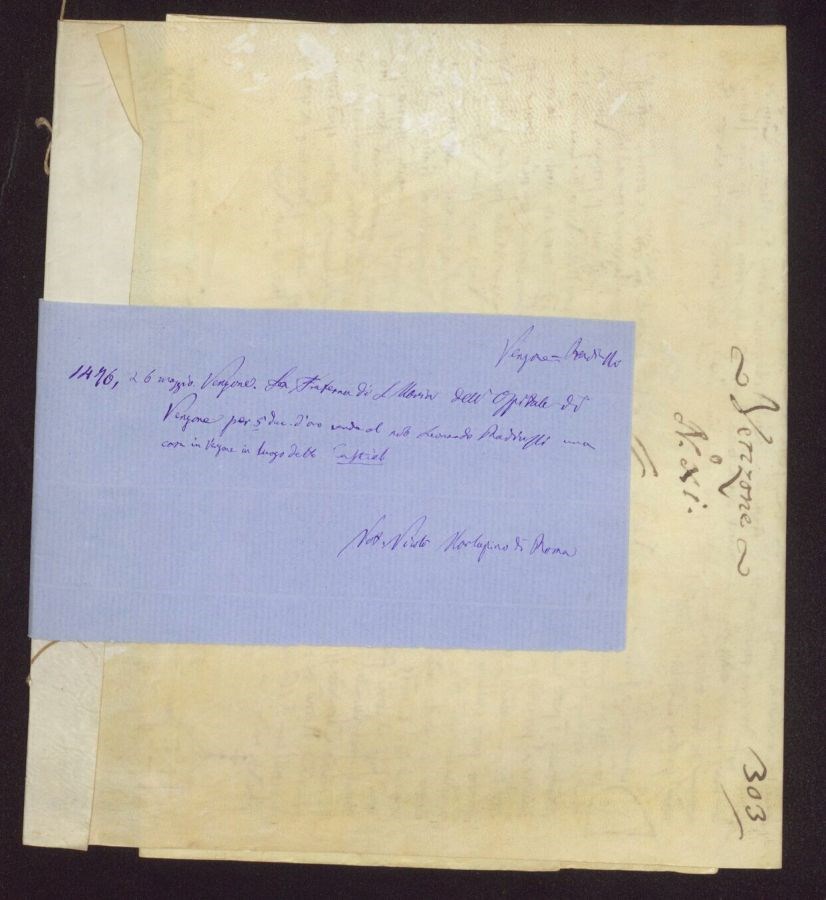 Venzone = Bardillo
1476, 26 maggio. Venzone. La Fraterna di S. Maria dell'Ospitale di
Venzone per 5 duc. d'oro vende al nob. Leonardo una
casa in Vzone in luogo detto
Not. Nicolò di Roma
~ Venzone ~
N.º XI.
303